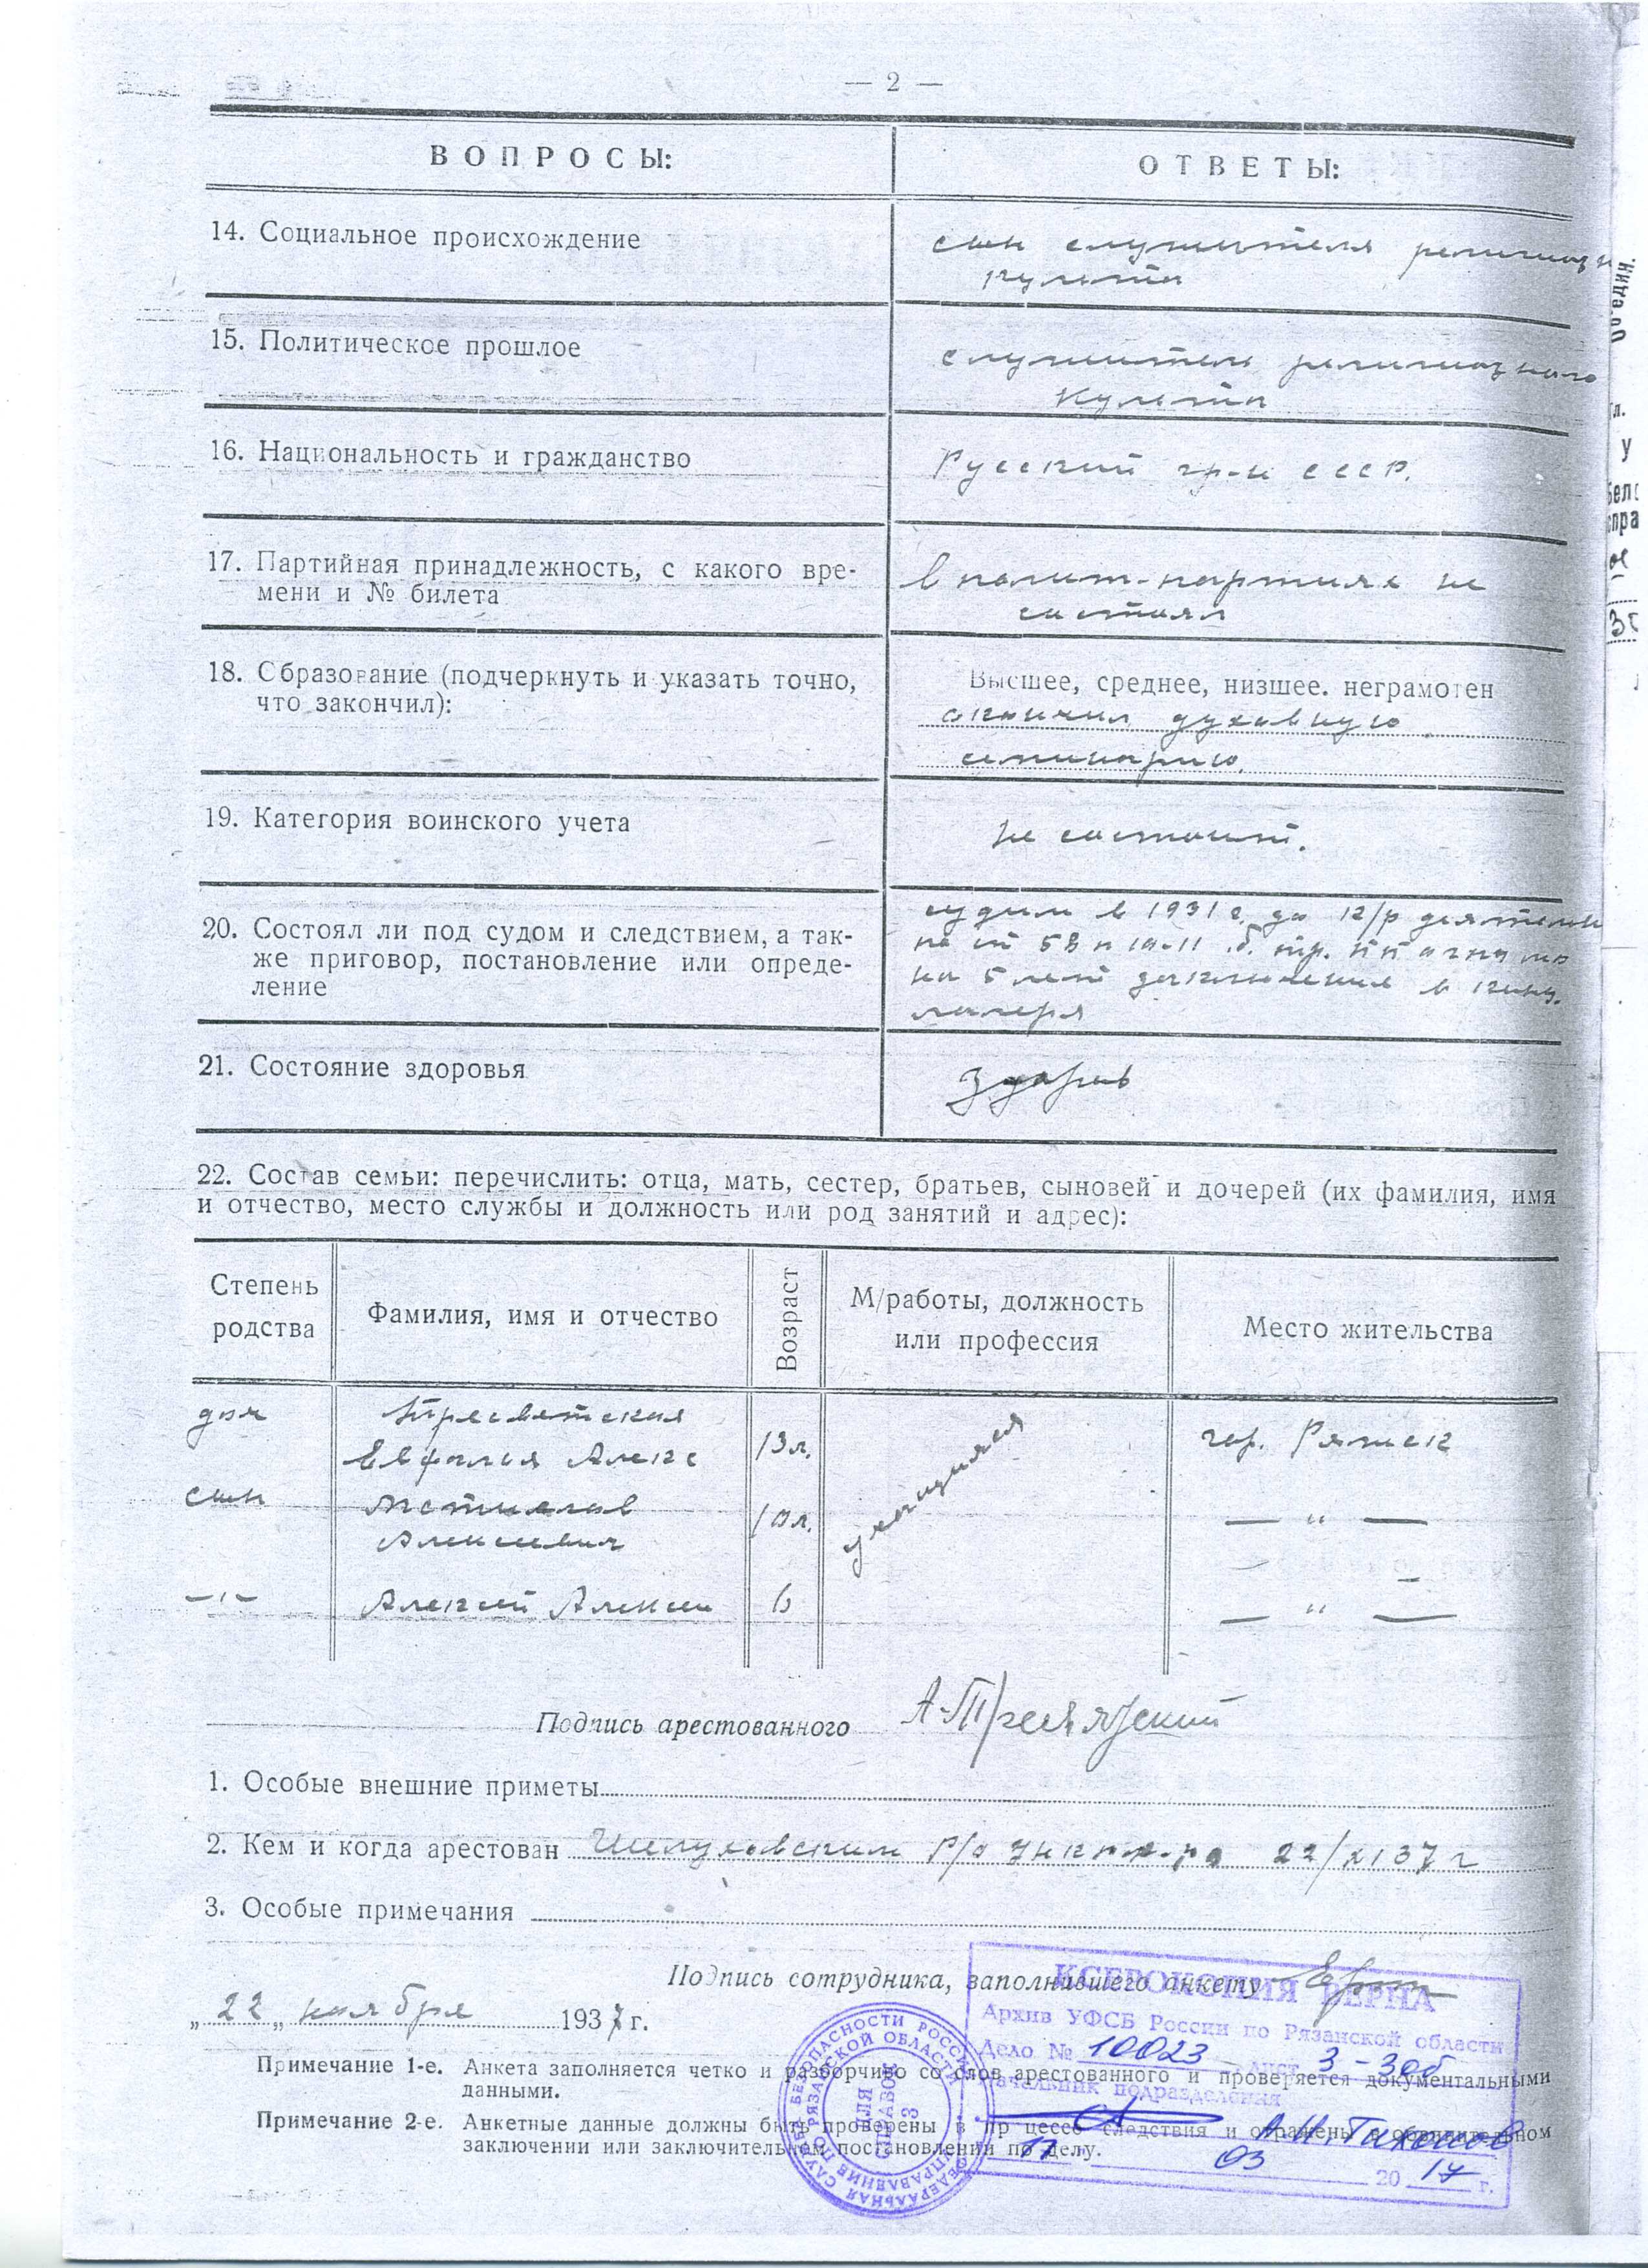 — 2 —
ВОПРОСЫ:
ОТВЕТЫ:
14. Социальное происхождение
сын служителя религиозн
культа
15. Политическое прошлое
служитель религиозного
культа
16. Национальность и гражданство
Русский гр-н СССР.
17. Партийная принадлежность, с какого вре-
мени и № билета
в полит-партиях не
состоял
18. Образование (подчеркнуть и указать точно,
что закончил):
Высшее, среднее, низшее. неграмотен
окончил духовную
семинарию.
19. Категория воинского учета
Не состоит.
20. Состоял ли под судом и следствием, а так-
же приговор, постановление или опреде-
ление
судим в 1931 г. за к/р деятельн
по ст 58 п 10-11
на 5 лет заключения в конц.
лагеря
21. Состояние здоровья
Здоров
22. Состав семьи: перечислить: отца, мать, сестер, братьев, сыновей и дочерей (их фамилия, имя
и отчество, место службы и должность или род занятий и адрес):
Степень
родства
Фамилия, имя и отчество
Возраст
М/работы, должность
или профессия
Место жительства
доч
Пресветская
Алекс
13 л.
учащиеся
гор. Ряжск
сын
Алексеевич
10 л.
— " —
— " —
Алексей Алексеев
6
— " —
Подпись арестованного
1. Особые внешние приметы
2. Кем и когда арестован Шелуховским Р/о УНКВД 22/XI 37 г
3. Особые примечания
Подпись сотрудника, заполнившего анкету
„ 22 „ ноября 1937 г.
Примечание 1-е. Анкета заполняется четко и разборчиво со слов арестованного и проверяется документальными
данными.
Примечание 2-е. Анкетные данные должны быть проверены в пр цессе следствия и отражены в обвинительном
заключении или заключительном постановлении по делу.
КСЕРОКОПИЯ ВЕРНА
Архив УФСБ России по Рязанской области
Дело № 10023 лист 3-3об
Начальник подразделения
А.И. Тихонов
17 03 2017 г.
ФЕДЕРАЛЬНАЯ СЛУЖБА БЕЗОПАСНОСТИ РОССИИ
УПРАВЛЕНИЕ ПО РЯЗАНСКОЙ ОБЛАСТИ
ДЛЯ
СПРАВОК
3